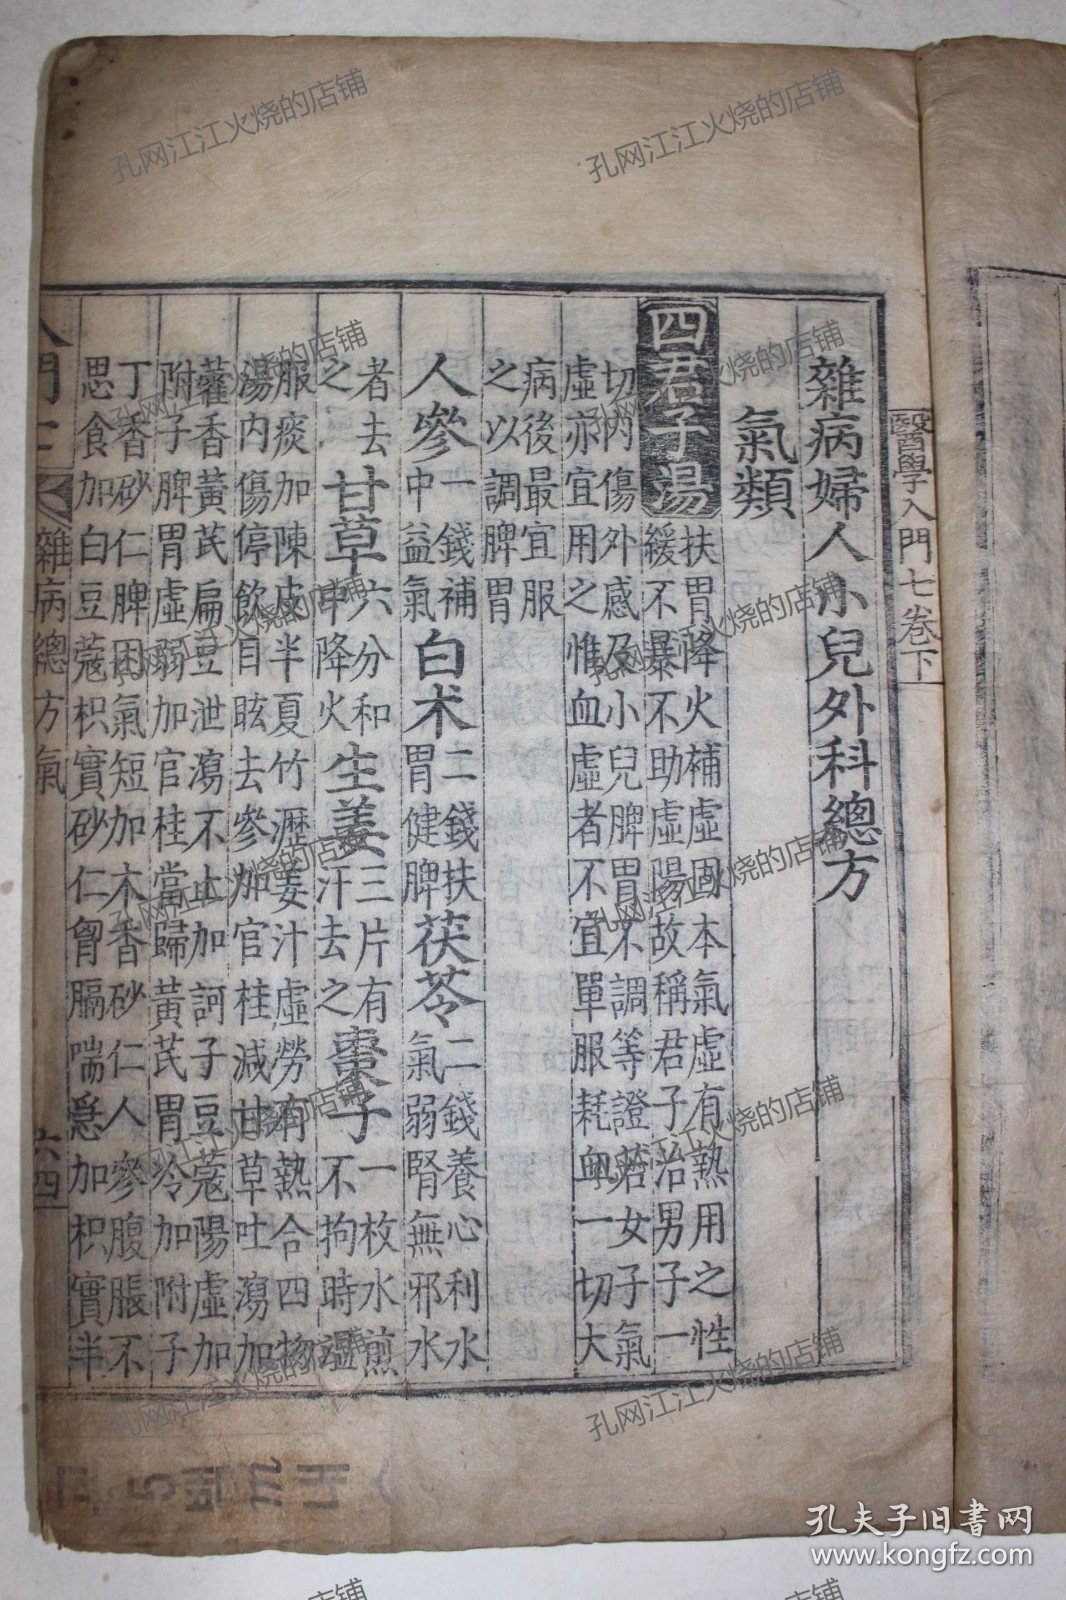 醫學入門七卷下
雜病婦人小兒外科總方
氣類
四君子湯
扶胃降火補虛固本氣虛有熱用之性
緩不暴不助虛陽故稱君子治男子一
切內傷外感及小兒脾胃不調等證若女子氣
虛亦宜用之惟血虛者不宜單服耗血一切大
病後最宜服
之以調脾胃
人參
一錢補
中益氣
白朮
二錢扶
胃健脾
茯苓
二錢養心利水
氣弱腎無邪水
者去
之
甘草
六分和
中降火
生姜
三片有
汗去之
棗子
一枚水煎
不拘時溫
服痰加陳皮半夏竹瀝姜汁虛勞有熱合四物
湯內傷停飲目眩去參加官桂減甘草吐瀉加
藿香黃芪扁豆泄瀉不止加訶子豆蔻陽虛加
附子脾胃虛弱加官桂當歸黃芪胃冷加附子
丁香砂仁脾困氣短加木香砂仁人參腹脹不
思食加白豆蔻枳實砂仁胷膈喘急加枳實半
入門七
雜病總方氣
六四
孔网江江火烧的店铺
孔夫子旧书网
www.kongfz.com